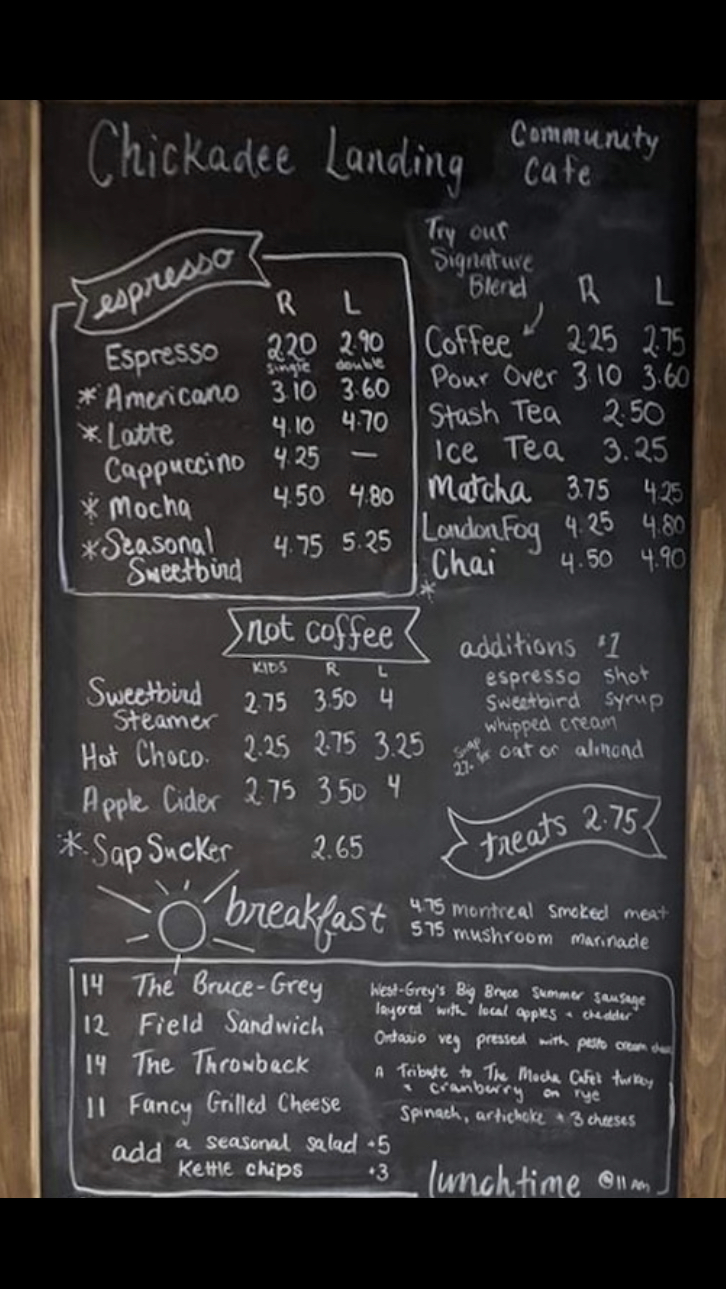 Chickadee Landing
Community
Cafe
espresso
R L
Espresso 2.20 2.90
single double
* Americano 3.10 3.60
* Latte 4.10 4.70
Cappuccino 4.25 —
* Mocha 4.50 4.80
* Seasonal 4.75 5.25
Sweetbird
Try our
Signature
Blend
R L
Coffee 2.25 2.75
Pour Over 3.10 3.60
Stash Tea 2.50
Ice Tea 3.25
Matcha 3.75 4.25
London Fog 4.25 4.80
Chai 4.50 4.90
*
not coffee
KIDS R L
Sweetbird 2.75 3.50 4
Steamer
Hot Choco. 2.25 2.75 3.25
Apple Cider 2.75 3.50 4
* Sap Sucker 2.65
additions $1
espresso shot
Sweetbird syrup
whipped cream
oat or almond
treats 2.75
breakfast
4.75 montreal smoked meat
5.75 mushroom marinade
14 The Bruce-Grey
West-Grey's Big Bruce Summer sausage
layered with local apples + cheddar
12 Field Sandwich
Ontario veg pressed with pesto cream
14 The Throwback
A Tribute to The Mocha Cafe's turkey
+ cranberry on rye
11 Fancy Grilled Cheese
Spinach, artichoke + 3 cheeses
add a seasonal salad +5
Kettle chips +3
lunchtime @11 AM